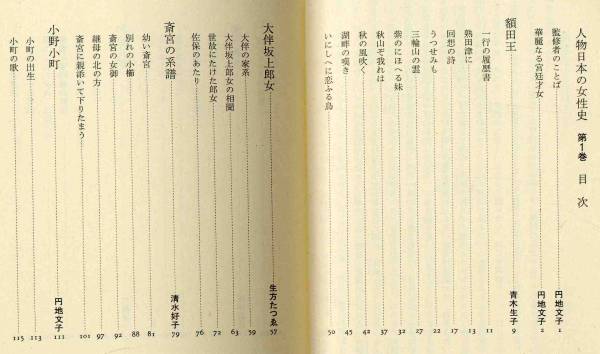 人物日本の女性史 第1巻 目次
監修者のことば 円地文子 1
華麗なる宮廷才女 円地文子 2
額田王 青木生子 9
一行の履歴書 11
熟田津に 13
回想の詩 17
うつせみも 22
三輪山の雲 27
紫のにほへる妹 32
秋山ぞ我れは 37
秋の風吹く 42
湖畔の嘆き 45
いにしへに恋ふる鳥 50
大伴坂上郎女 生方たつゑ 57
大伴の家系 59
大伴坂上郎女の相聞 63
世故にたけた郎女 72
佐保のあたり 76
斎宮の系譜 清水好子 79
幼い斎宮 81
別れの小櫛 88
斎宮の女御 92
継母の北の方 97
斎宮に親添いて下りたまう 101
小野小町 円地文子 111
小町の出生 113
小町の歌 115